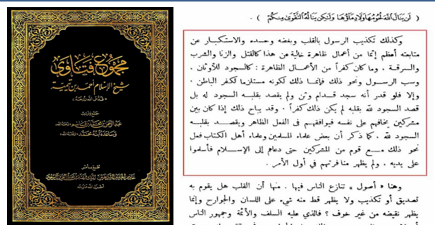 مجموع فتاوى
شيخ الإسلام أحمد بن تيمية
( لَن يَنَالَ اللَّهَ لُحُومُهَا وَلَا دِمَاؤُهَا وَلَٰكِن يَنَالُهُ التَّقْوَىٰ مِنكُمْ ) .
وكذلك تكذيب الرسول بالقلب وبغضه وحسده والاستكبار عن
متابعته أعظم إثما من أعمال ظاهرة خالية من هذا كالقتل والزنا والشرب
والسرقة ، وما كان كفراً من الأعمال الظاهرة : كالسجود للأوثان .
وسب الرسول ونحو ذلك فإنما ذلك لكونه مستلزما لكفر الباطن ،
وإلا فلو قدر أنه سجد قدام وثن ولم يقصد بقلبه السجود له بل
قصد السجود لله بقلبه لم يكن ذلك كفراً . وقد يباح ذلك إذا كان بين
مشركين يخافهم على نفسه فيوافقهم في الفعل الظاهر ويقصد بقلبه
السجود لله ، كما ذكر أن بعض علماء المسلمين وعلماء أهل الكتاب فعل
نحو ذلك مع قوم من المشركين حتى دعام إلى الإسلام فأسلموا
على يديه ، ولم يظهر منافرتهم في أول الأمر .
وهنا « أصول » تنازع الناس فيها . منها أن القلب هل يقوم به
تصديق أو تكذيب ولا يظهر قط منه شيء على اللسان والجوارح وإنما
يظهر نقيضه من غير خوف ؟ فالذي عليه السلف والأئمة وجمهور الناس